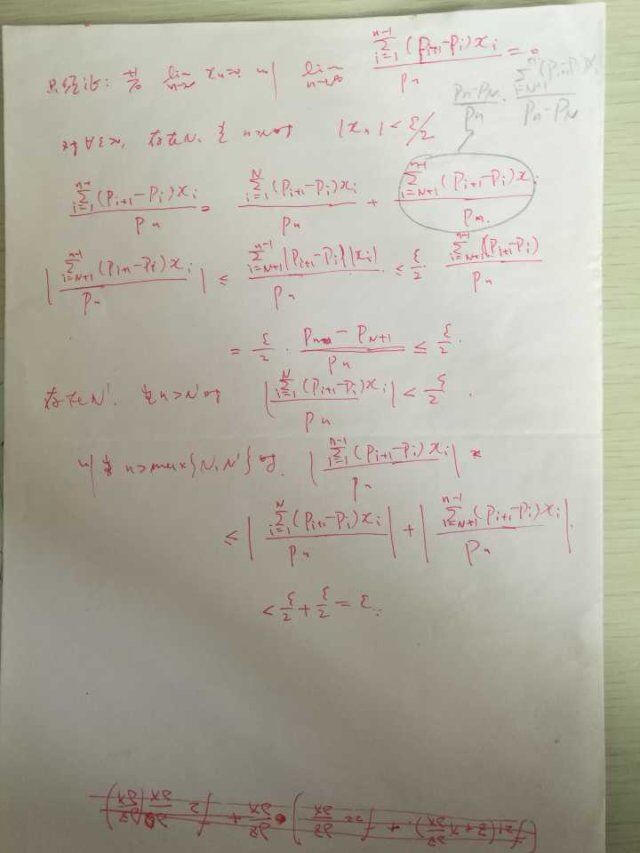 只须证: 若 \lim_{n→∞} x_n = 0 则 \lim_{n→∞} \frac{\sum_{i=1}^{n-1}(p_{i+1}-p_i)x_i}{p_n} = 0
\frac{p_n-p_N}{p_n} · \frac{\sum_{i=N+1}^{n-1}(p_{i+1}-p_i)x_i}{p_n-p_N}
对∀ε>0, 存在N, 当n>N时 |x_n| < ε/2
\frac{\sum_{i=1}^{n-1}(p_{i+1}-p_i)x_i}{p_n} = \frac{\sum_{i=1}^{N}(p_{i+1}-p_i)x_i}{p_n} + \frac{\sum_{i=N+1}^{n-1}(p_{i+1}-p_i)x_i}{p_n}
|\frac{\sum_{i=N+1}^{n-1}(p_{i+1}-p_i)x_i}{p_n}| ≤ \frac{\sum_{i=N+1}^{n-1}|p_{i+1}-p_i||x_i|}{p_n} ≤ \frac{ε}{2} \frac{\sum_{i=N+1}^{n-1}(p_{i+1}-p_i)}{p_n}
= \frac{ε}{2} · \frac{p_n - p_{N+1}}{p_n} ≤ \frac{ε}{2}.
存在N'. 当n>N'时 |\frac{\sum_{i=1}^{N}(p_{i+1}-p_i)x_i}{p_n}| < \frac{ε}{2}.
则当n>max{N, N'}时. |\frac{\sum_{i=1}^{n-1}(p_{i+1}-p_i)x_i}{p_n}|
≤ |\frac{\sum_{i=1}^{N}(p_{i+1}-p_i)x_i}{p_n}| + |\frac{\sum_{i=N+1}^{n-1}(p_{i+1}-p_i)x_i}{p_n}|.
< \frac{ε}{2} + \frac{ε}{2} = ε.